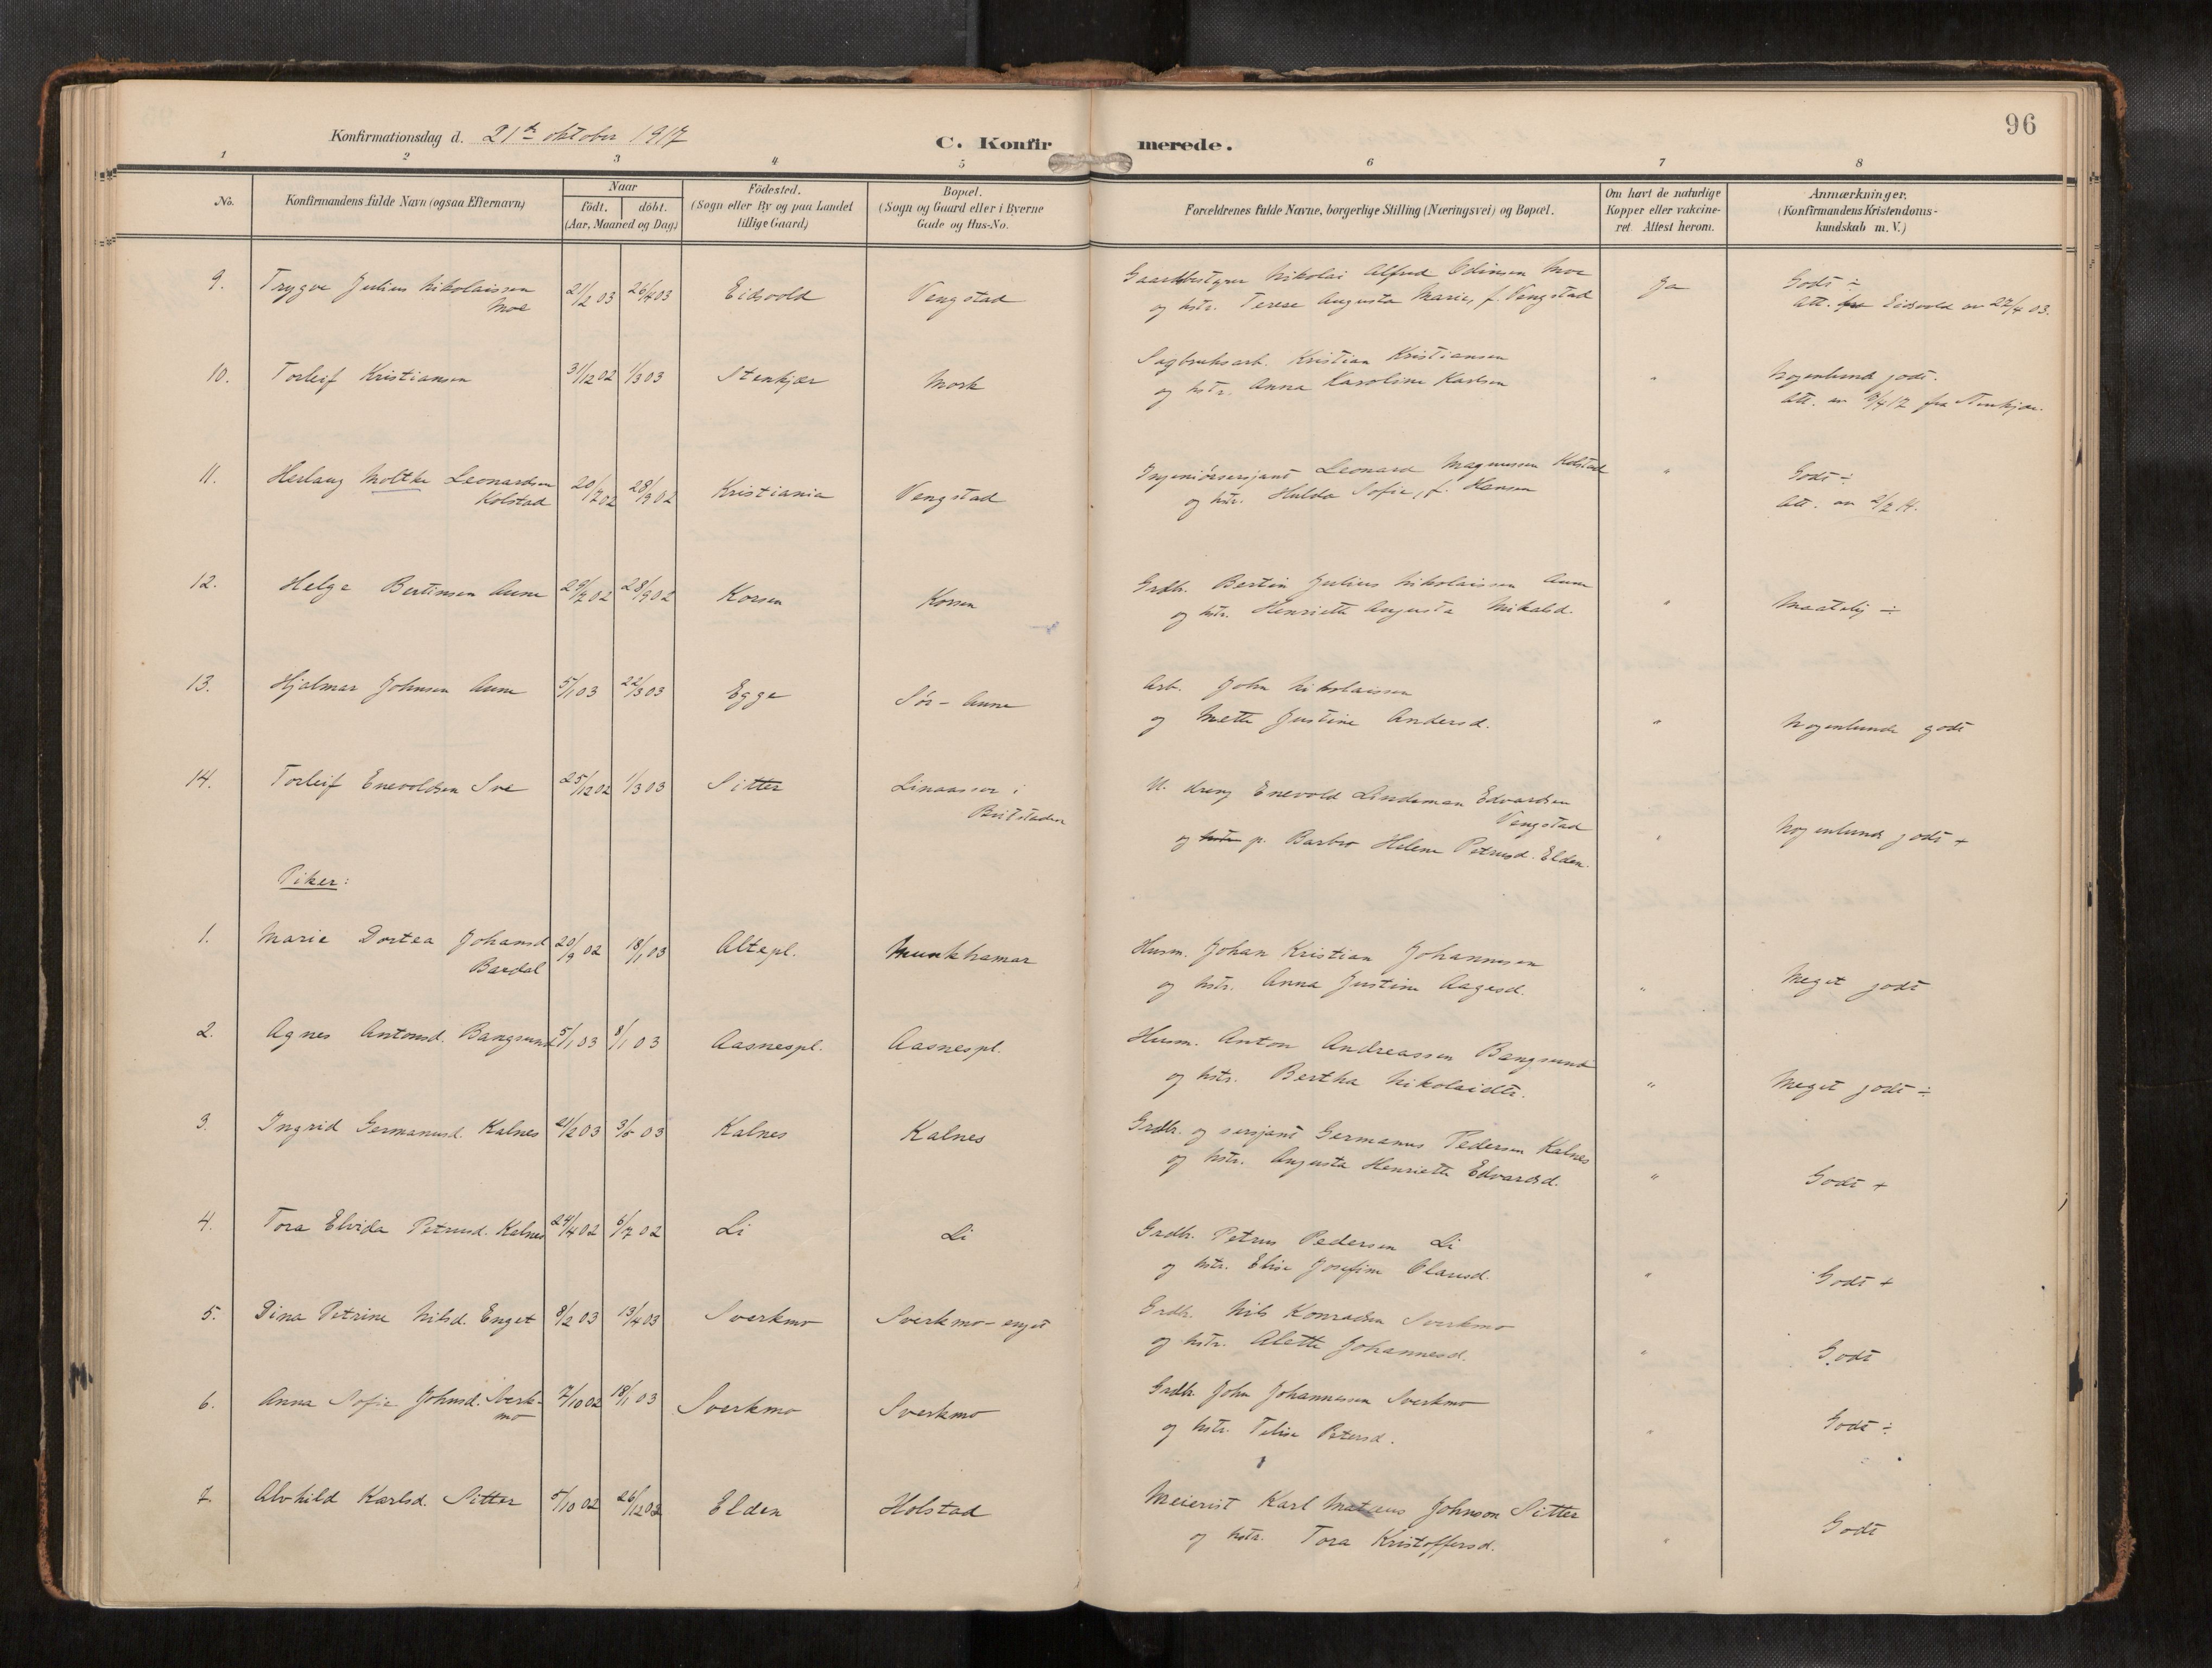 96
Konfirmationsdag d. 21de oktober 1917
C. Konfirmerede.
1 2 3 4 5 6 7 8
No.
Konfirmandens fulde Navn (ogsaa Efternavn)
Naar
födt. döbt.
(Aar, Maaned og Dag)
Födested.
(Sogn eller By og paa Landet
tillige Gaard)
Bopæl.
(Sogn og Gaard eller i Byerne
Gade og Hus-No.
Forældrenes fulde Navne, borgerlige Stilling (Næringsvei) og Bopæl.
Om havt de naturlige
Kopper eller vakcine-
ret. Attest herom.
Anmærkninger.
(Konfirmandens Kristendoms-
kundskab m. V.)
9. Trygve Julius Nikolaissen 21/2 03 26/4 03 Eidsvold Vengstad Gaardbestyrer Nikolai Alfred Odinsen Moe Ja Godt ÷
Moe og hstr. Terese Augusta Marie, f. Vengstad Att. fra Eidsvold av 27/4 03.
10. Torleif Kristiansen 31/12 02 1/3 03 Stenkjær Mork Sagbruksarb. Kristian Kristiansen " Nogenlunde godt.
og hstr. Anna Karoline Karlsen Att. av /4 17 fra Stenkjær.
11. Herlaug Moltke Leonardsen 20/7 02 28/9 02 Kristiania Vengstad Ingeniörsersjant Leonard Magnussen Kolstad " Godt ÷
Kolstad og hstr. Hulda Sofie, f. Hansen Att. av 2/2 14.
12. Helge Bertinsen Aune 29/7 02 28/9 02 Korsen Korsen Grdbr. Bertin Julius Nikolaissen Aune
og hstr. Henriette Augusta Mikalsd. " Maatelig ÷
13. Hjalmar Johnsen Aune 5/1 03 22/3 03 Egge Sör-Aune Arb. John Nikolaissen
og Mette Justine Andersd. " Nogenlunde godt
14. Torleif Enevoldsen Sve 25/12 02 1/3 03 Sitter Linaasser i U. dreng Enevold Lindeman Edvardsen
Beitstaden Vengstad
og hstr. p. Barbro Helene Petersd. Elden. " Nogenlunde godt +
Piker:
1. Marie Dortea Johansd. 20/9 02 18/1 03 Altepl. Munkhamar Husm. Johan Kristian Johannesen
Bardal og hstr. Anna Justine Aagesd. " Meget godt
2. Agnes Antonsd. Bangsund 5/1 03 8/1 03 Aasnespl. Aasnespl. Husm. Anton Andreassen Bangsund
og hstr. Bertha Nikolaidtr. " Meget godt ÷
3. Ingrid Germanusd. Kalnes 21/2 03 3/5 03 Kalnes Kalnes Grdbr. og sersjant Germanus Pedersen Kalnes
og hstr. Augusta Henriette Edvardsd. " Godt +
4. Tora Elvida Petrusd. Kalnes 24/4 02 6/7 02 Li Li Grdbr. Petrus Pedersen Li
og hstr. Elise Josefine Olausd. " Godt +
5. Dina Petrine Nilsd. Enget 8/2 03 13/4 03 Sverkmo Sverkmo-enget Grdbr. Nils Konradsen Sverkmo
og hstr. Alette Johannesd. " Godt
6. Anna Sofie Johnsd. Sverk- 7/10 02 18/1 03 Sverkmo Sverkmo Grdbr. John Johannesen Sverkmo
mo og hstr. Petersd. " Godt ÷
7. Alvhild Karlsd. Sitter 5/10 02 26/12 02 Elden Holstad Meierist Karl Mataus Johnson Sitter
og hstr. Tora Kristoffersd. " Godt